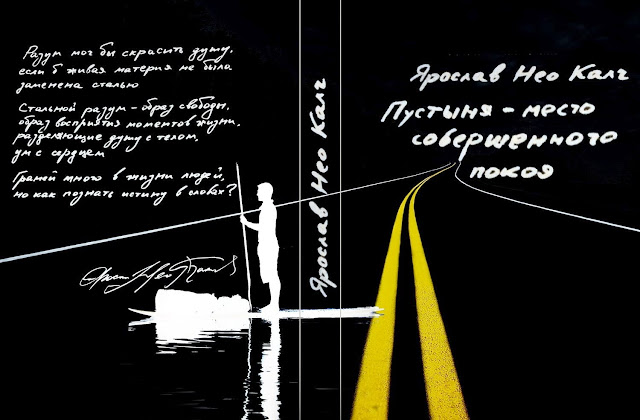 Разум мог бы скрасить душу,
если б живая материя не была
заменена сталью
Стальной разум - образ свободы,
образ восприятия моментов жизни,
разделяющие душу с телом,
ум с сердцем
Граней много в жизни людей,
но как познать истину в словах?
Ярослав Нео Калч
Ярослав Нео Калч
Пустыня - место
совершенного
покоя